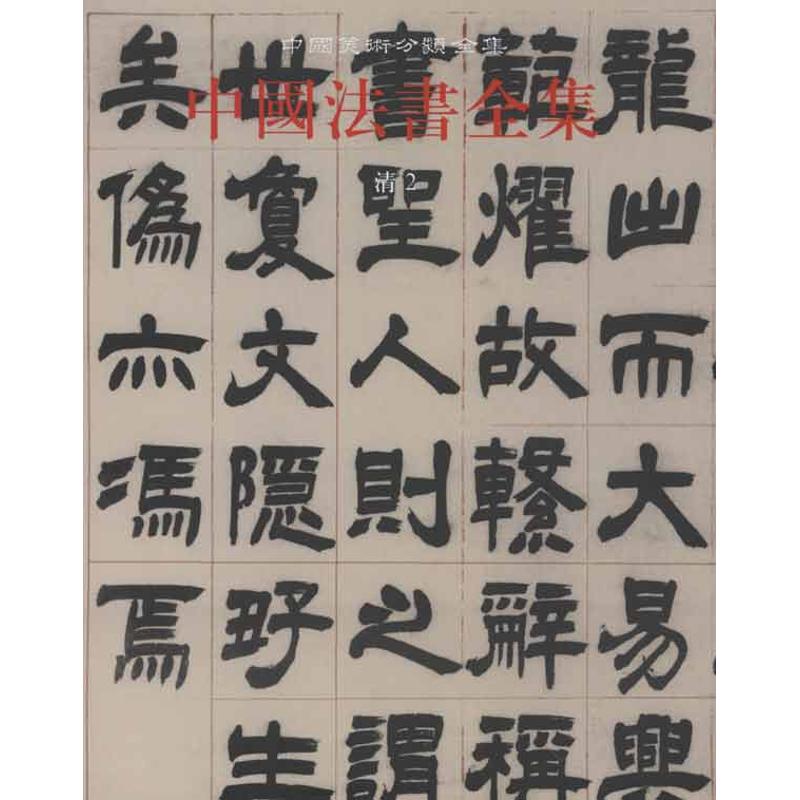 中國美術分類全集
中國法書全集
清 2
龍出而大易興
範燿故繫辭稱
書聖人則之謂
世夐文隱好生
矣僞亦馮焉